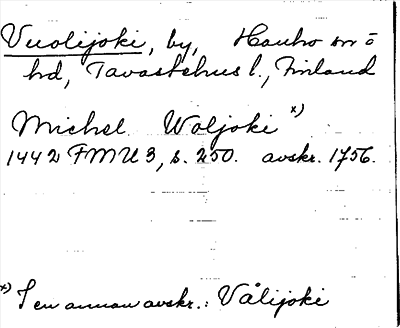 Vuolijoki, by, Hauho sn o
hd, Tavastehus l., Finland
Michel Woljoki x)
1442 FMU 3, s. 250. avskr. 1756.
x) I en annan avskr.: Vålijoki